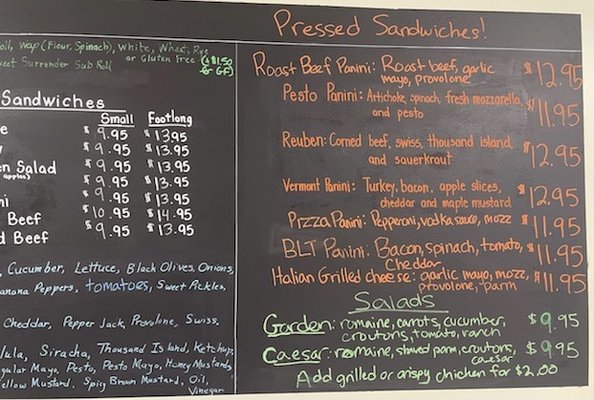 Roll, Wrap (Flour, Spinach), White, Wheat, Rye
or Gluten Free (+$1.50
for GF)
Sweet Surrender Sub Roll
Sandwiches
Small Footlong
$9.95 $13.95
$9.95 $13.95
en Salad $9.95 $13.95
apples) $9.95 $13.95
ni $9.95 $13.95
Beef $10.95 $14.95
d Beef $9.95 $13.95
Cucumber, Lettuce, Black Olives, Onions,
anana Peppers, tomatoes, Sweet Pickles,
Cheddar, Pepper Jack, Provolone, Swiss.
lula, Siracha, Thousand Island, Ketchup,
gular Mayo, Pesto, Pesto Mayo, Honey Mustard,
Yellow Mustard, Spicy Brown Mustard, Oil,
Vinegar
Pressed Sandwiches!
Roast Beef Panini: Roast beef, garlic
mayo, provolone $12.95
Pesto Panini: Artichoke, spinach, fresh mozzarella,
and pesto $11.95
Reuben: Corned beef, swiss, thousand island,
and sauerkraut $12.95
Vermont Panini: Turkey, bacon, apple slices,
cheddar and maple mustard $12.95
Pizza Panini: Pepperoni, vodka sauce, mozz $11.95
BLT Panini: Bacon, spinach, tomato,
Cheddar $11.95
Italian Grilled cheese: garlic mayo, mozz,
provolone, parm $11.95
Salads
Garden: romaine, carrots, cucumber,
croutons, tomato, ranch $9.95
Caesar: romaine, shaved parm, croutons,
caesar $9.95
Add grilled or crispy chicken for $2.00